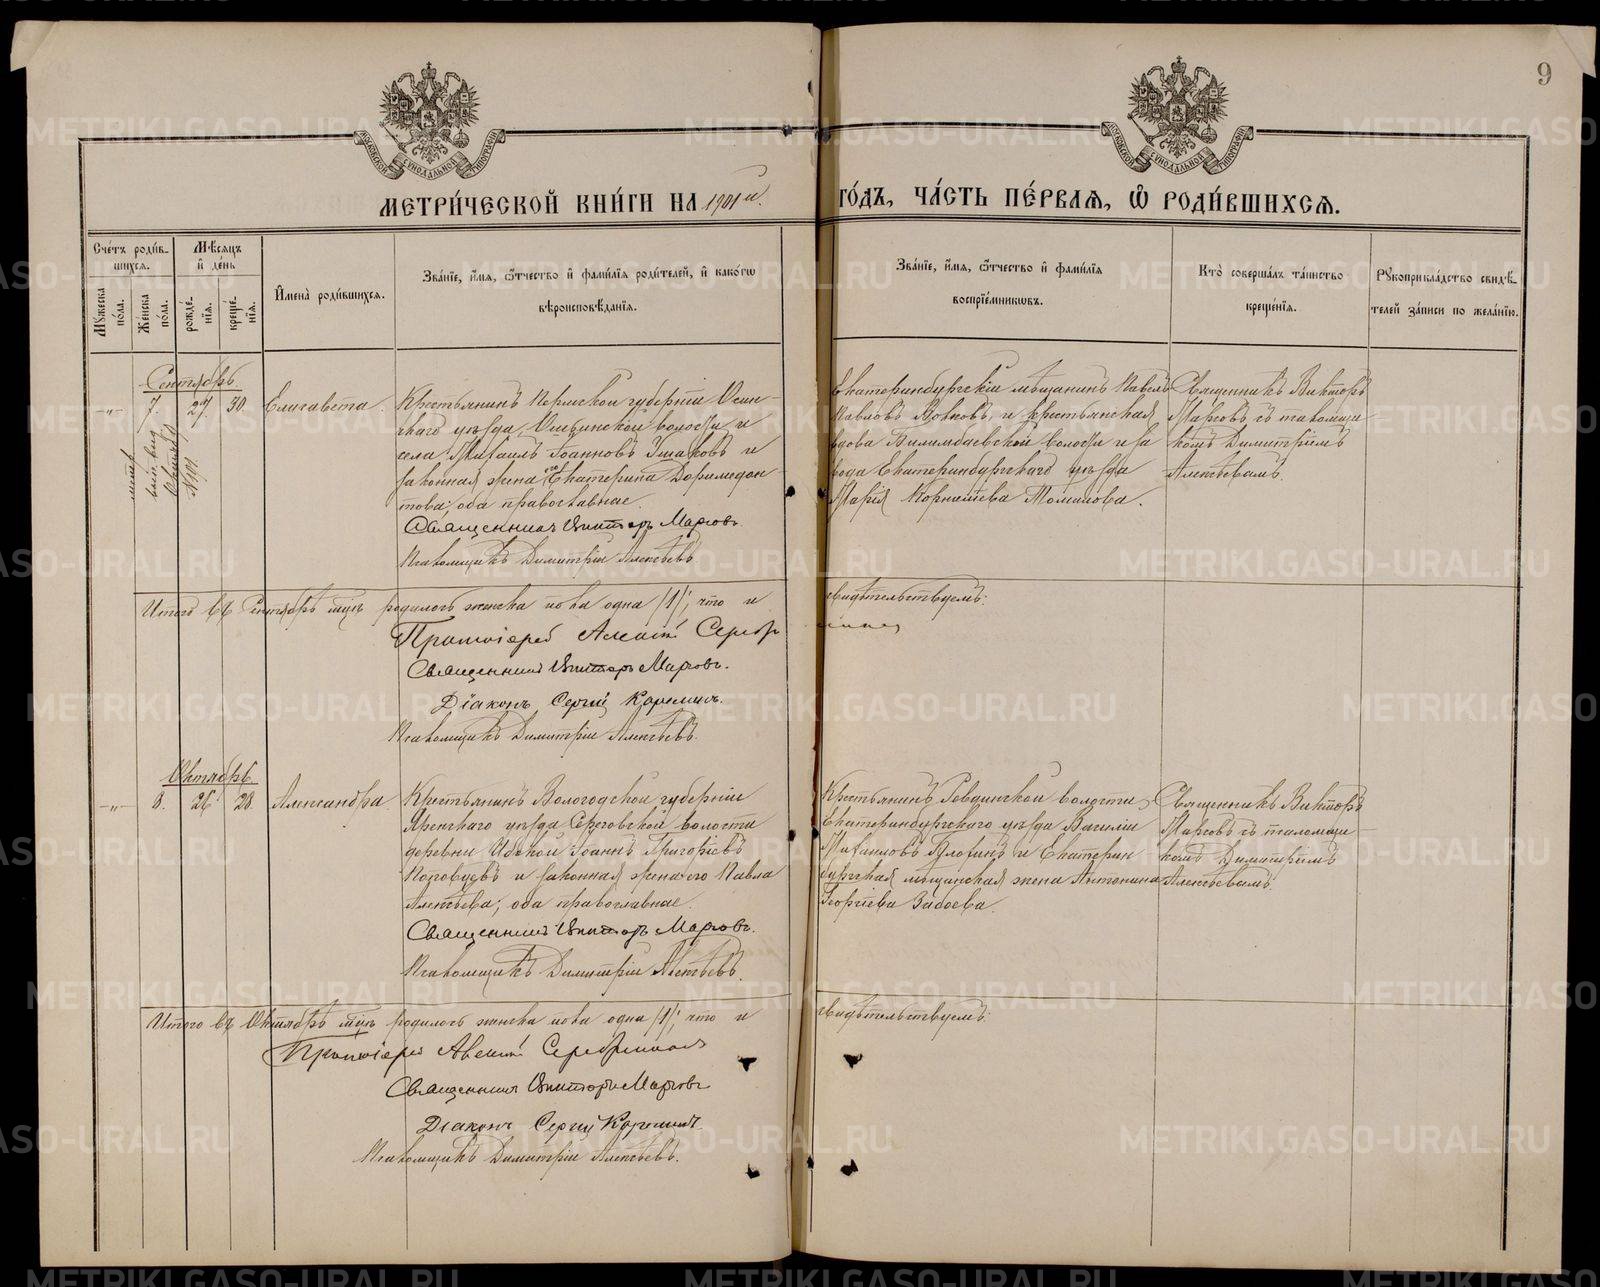 9
МОСКОВСКОЙ СѴНОДАЛЬНОЙ ТИПОГРАФІИ
МОСКОВСКОЙ СѴНОДАЛЬНОЙ ТИПОГРАФІИ
МЕТРИ́ЧЕСКОЙ КНИ́ГИ НА 1901 й. ГО́ДЪ, ЧА́СТЬ ПЕ́РВАѦ, Ѡ҆ РОДИ́ВШИХСѦ.
Сче́тъ роди́в-
шихся.
Мѣ́сяцъ
и҆ де́нь
Мꙋ́жеска
по́ла.
Же́нска
по́ла.
рожде́-
нїѧ.
креще́-
нїѧ.
И҆мена̀ роди́вшихсѧ.
Зва́нїе, и҆́мѧ, ѻ҆́тчество и҆ фами́лїѧ роди́телей, и҆ како́гѡ
вѣроисповѣ́данїѧ.
Зва́нїе, и҆́мѧ, ѻ҆́тчество и҆ фами́лїѧ
воспрїе́мникѡвъ.
Кто̀ соверша́лъ та́инство
креще́нїѧ.
Рꙋкоприкла́дство свидѣ́-
телей за́писи по жела́нїю.
Сентябрь
-„- 7. 27. 30. Елизавета.
метр
выпись
№ 191
Крестьянинъ Пермской губерніи Осин-
скаго уѣзда, волости и
села Михаилъ Іоанновъ Ушаковъ и
законная жена его Екатерина Доримедон
това, оба православные.
Священникъ Викторъ Марковъ.
Псаломщикъ Димитрій Алексѣевъ.
Екатеринбургскій мѣщанинъ Павелъ
Павловъ Волковъ, и крестьянская
вдова Билимбаевской волости и за
вода Екатеринбургскаго уѣзда
Марія Корнилѣева Томилова.
Священникъ Викторъ
Марковъ съ псаломщи
комъ Димитріемъ
Алексѣевымъ.
Итого въ Сентябрѣ мцѣ родилось женска пола одна /1/, что и свидѣтельствуемъ:
Протоіерей Алексій Серебр
Священникъ Викторъ Марковъ.
Діаконъ Сергій Корелинъ.
Псаломщикъ Димитрій Алексѣевъ.
Октябрь.
-„- 8. 26 28. Александра.
Крестьянинъ Вологодской губерніи
Яренскаго уѣзда Сереговской волости
деревни Ибской Іоаннъ Григоріевъ
и законная жена его Павла
Алексѣева; оба православные.
Священникъ Викторъ Марковъ.
Псаломщикъ Димитрій Алексѣевъ.
Крестьянинъ Ревдинской волости,
Екатеринбургскаго уѣзда Василій
Михаиловъ и Екатерин
бургская мѣщанская жена Антонина
Георгіева Зыбаева.
Священникъ Викторъ
Марковъ съ псаломщи-
комъ Димитріемъ
Алексѣевымъ.
Итого въ Октябрѣ мцѣ родилось женска пола одна /1/, что и свидѣтельствуемъ:
Протоіерей Алексій
Священникъ Викторъ Марковъ
Діаконъ Сергій Корелинъ.
Псаломщикъ Димитрій Алексѣевъ.
METRIKI.GASO-URAL.RU